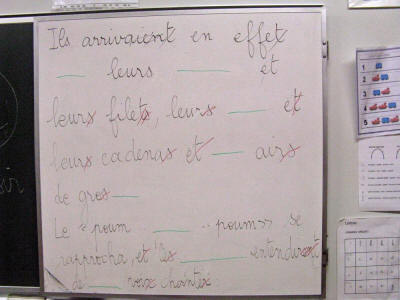 Ils arrivaient en effet
__ leurs ____ et
leurs filets, leurs ___ et
leurs cadenas et ___ airs
de gros ___
Le « poum ... ____ .. poums » se
rapprocha, et les _____ entendirent
de ___ voix
1
2
3
4
5